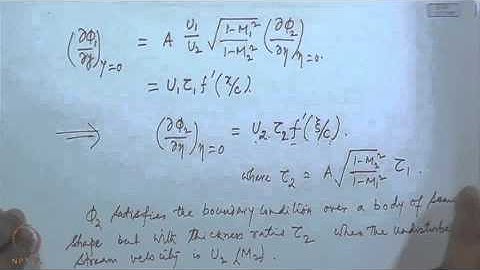 (∂Φ₁/∂y)_{y=0} = A U₁/U₂ √((1-M₁²)/(1-M₂²)) (∂Φ₂/∂η)_{η=0.}
= U₁ τ₁ f'(x/c).
⟹ (∂Φ₂/∂η)_{η=0} = U₂ τ₂ f'(ξ/c).
where τ₂ = A √((1-M₂²)/(1-M₁²)) τ₁.
Φ₂ satisfies the boundary condition over a body of same
shape but with thickness ratio τ₂ when the undisturbe
stream velocity is U₂ (M₂).
NPTEL